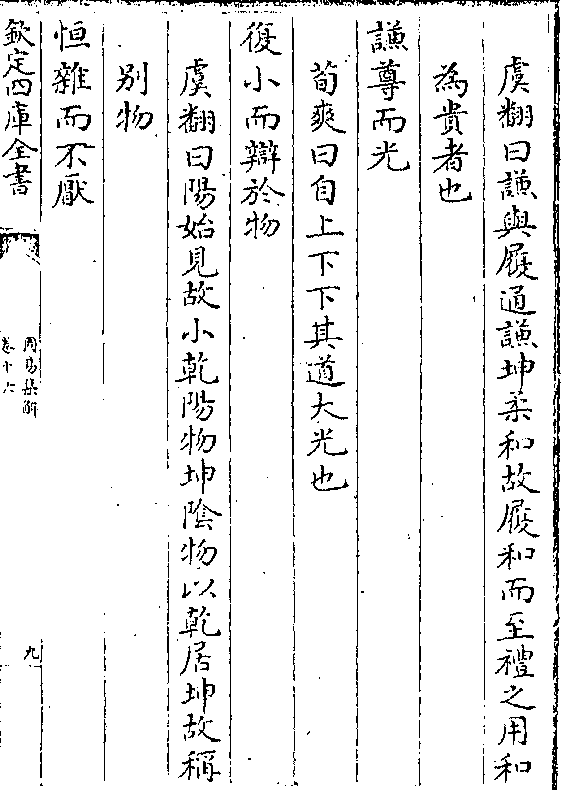 虞翻曰謙與履通謙坤柔和故履和而至禮之用和
為貴者也
謙尊而光
荀爽曰自上下下其道大光也
復小而辯於物
虞翻曰陽始見故小乾陽物坤陰物以乾居坤故稱
别物
恒雜而不厭
欽定四庫全書
周易集解
卷十六
九